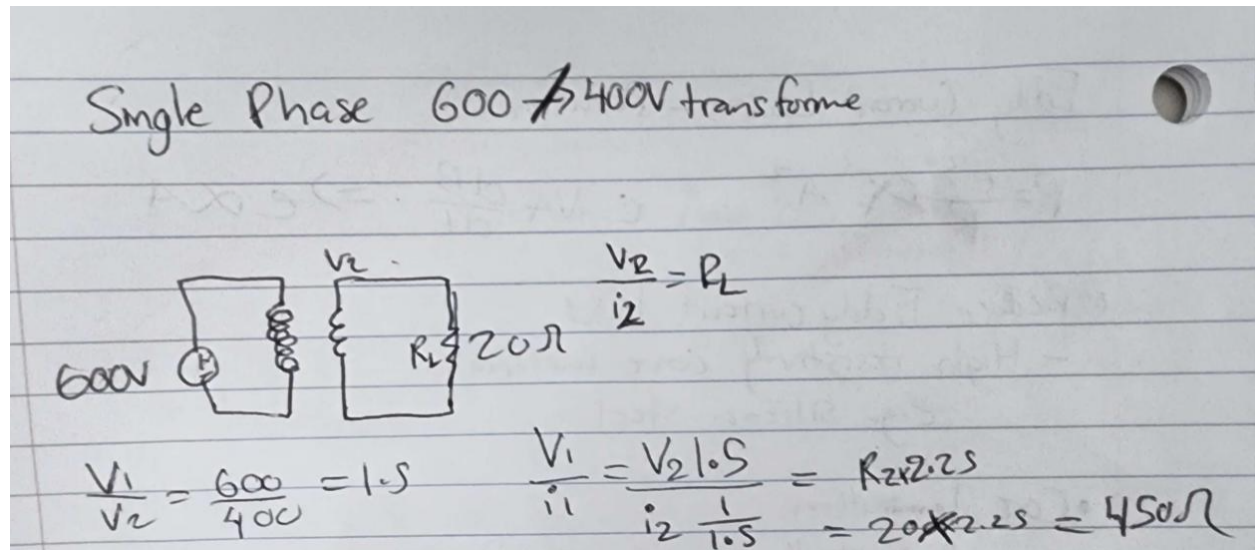 Single Phase 600/400V transforme
V2
V2/i2 = RL
600V
RL 20Ω
V1/V2 = 600/400 = 1.5
V1/i1 = V2 1.5 / i2 1/1.5 = R2x2.25
= 20x2.25 = 450Ω